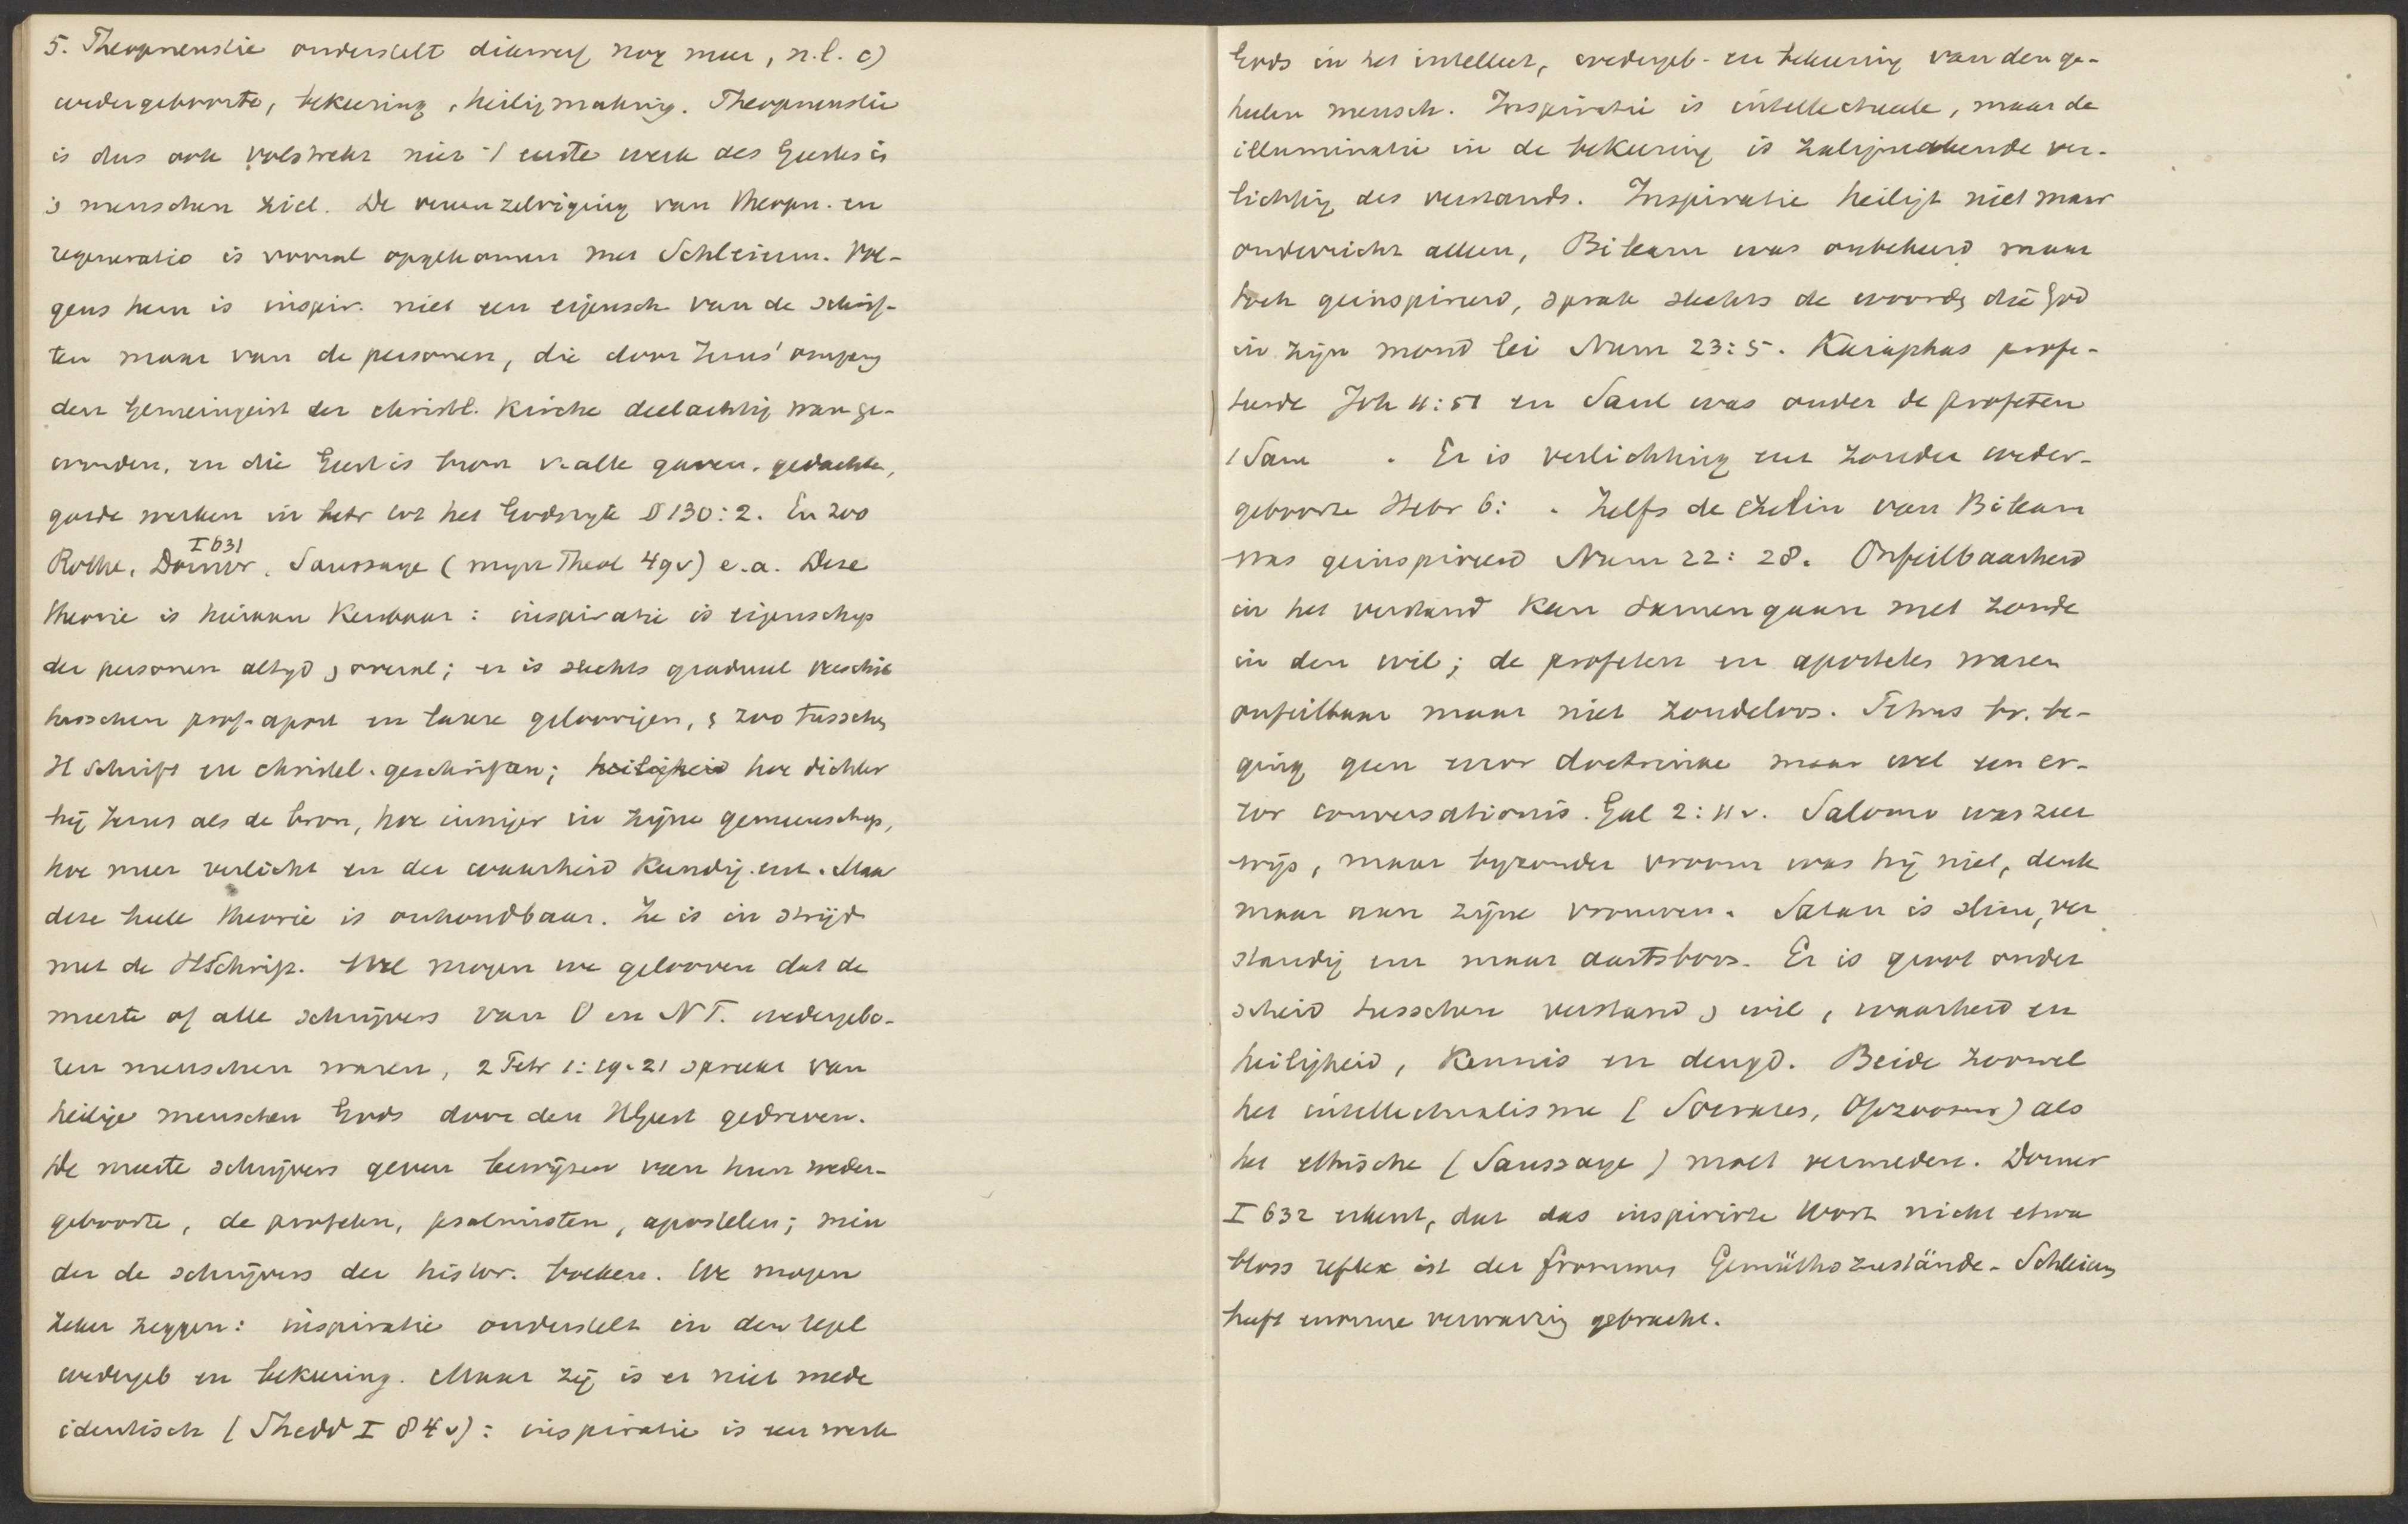 5. Theopneustie onderstelt dikwerf nog meer, n.l. c)
wedergeboorte, bekeering, heiligmaking. Theopneustie
is dus ook volstrekt niet 't eerste werk des Geestes i
's menschen ziel. De vereenzelviging van theopn. en
regeneratio is vooral opgekomen met Schleierm. Vol-
gens hem is inspir. niet een eigensch van de schrif-
ten maar van de personen, die door Jezus' omgang
den Gemeingeist der christl. Kirche deelachtig waren ge-
worden, en die Geest is bron v. alle gaven, gedachte,
goede werken in betr tot het Godsryk § 130:2. En zoo
I 631
Rothe, Dorner, Saussaye (mijn Theol 49v) e.a. Deze
theorie is hieraan kenbaar: inspiratie is eigenschap
der personen altyd, overal; er is slechts gradueel verschil
tusschen prof. apost en latere geloovigen, & zoo tusschen
H Schrift en christel. geschriften; heiligheid hoe dichter
bij Jezus als de bron, hoe inniger in zijne gemeenschap,
hoe meer verlicht en der waarheid kundig enz. Maar
deze heele theorie is onhoudbaar. Ze is in strijd
met de HSchrift. Wel mogen we gelooven dat de
meeste of alle schrijvers van O en NT. wedergebo-
ren menschen waren, 2 Petr 1:19-21 spreekt van
heilige menschen Gods door den HGeest gedreven.
De meeste schrijvers geven bewijzen van hun weder-
geboorte, de profeten, psalmisten, apostelen; min
der de schrijvers der histor. boeken. We mogen
zeker zeggen: inspiratie onderstelt in den regel
wedergeb en bekeering. Maar zij is er niet mede
identisch (Shedd I 84v): inspiratie is een werk
Gods in het intellect, wedergeb- en bekeering van den ge-
heelen mensch. Inspiratie is intellectueele, maar de
illuminatie in de bekeering is zaligmakende ver-
lichting des verstands. Inspiratie heiligt niet maar
onderricht alleen, Bileam was onbekeerd maar
toch geinspireerd, sprak slechts de woorden die God
in zijn mond lei Num 23:5. Kaiaphas profe-
teerde Joh 11:51 en Saul was onder de profeten
1 Sam . Er is verlichting enz zonder weder-
geboorte Hebr 6: . Zelfs de ezelin van Bileam
was geinspireerd Num 22:28. Onfeilbaarheid
in het verstand kan samengaan met zonde
in den wil; de profeten en apostelen waren
onfeilbaar maar niet zondeloos. Petrus bv. be-
ging geen error doctrinae maar wel een er-
ror conversationis. Gal 2:11v. Salomo was zeer
wijs, maar byzonder vroom was hij niet, denk
maar aan zijne vrouwen. Satan is slim, ver
standig enz maar aartsboos. Er is groot onder
scheid tusschen verstand & wil, waarheid en
heiligheid, kennis en deugd. Beide zoowel
het intellectualisme (Socrates, ) als
het ethische (Saussaye) moet vermeden. Dorner
I 632 erkent, dat das inspirirte Wort nicht etwa
bloss reflex ist der frommen Gemüthszustände. Schleierm
heeft enorme verwarring gebracht.